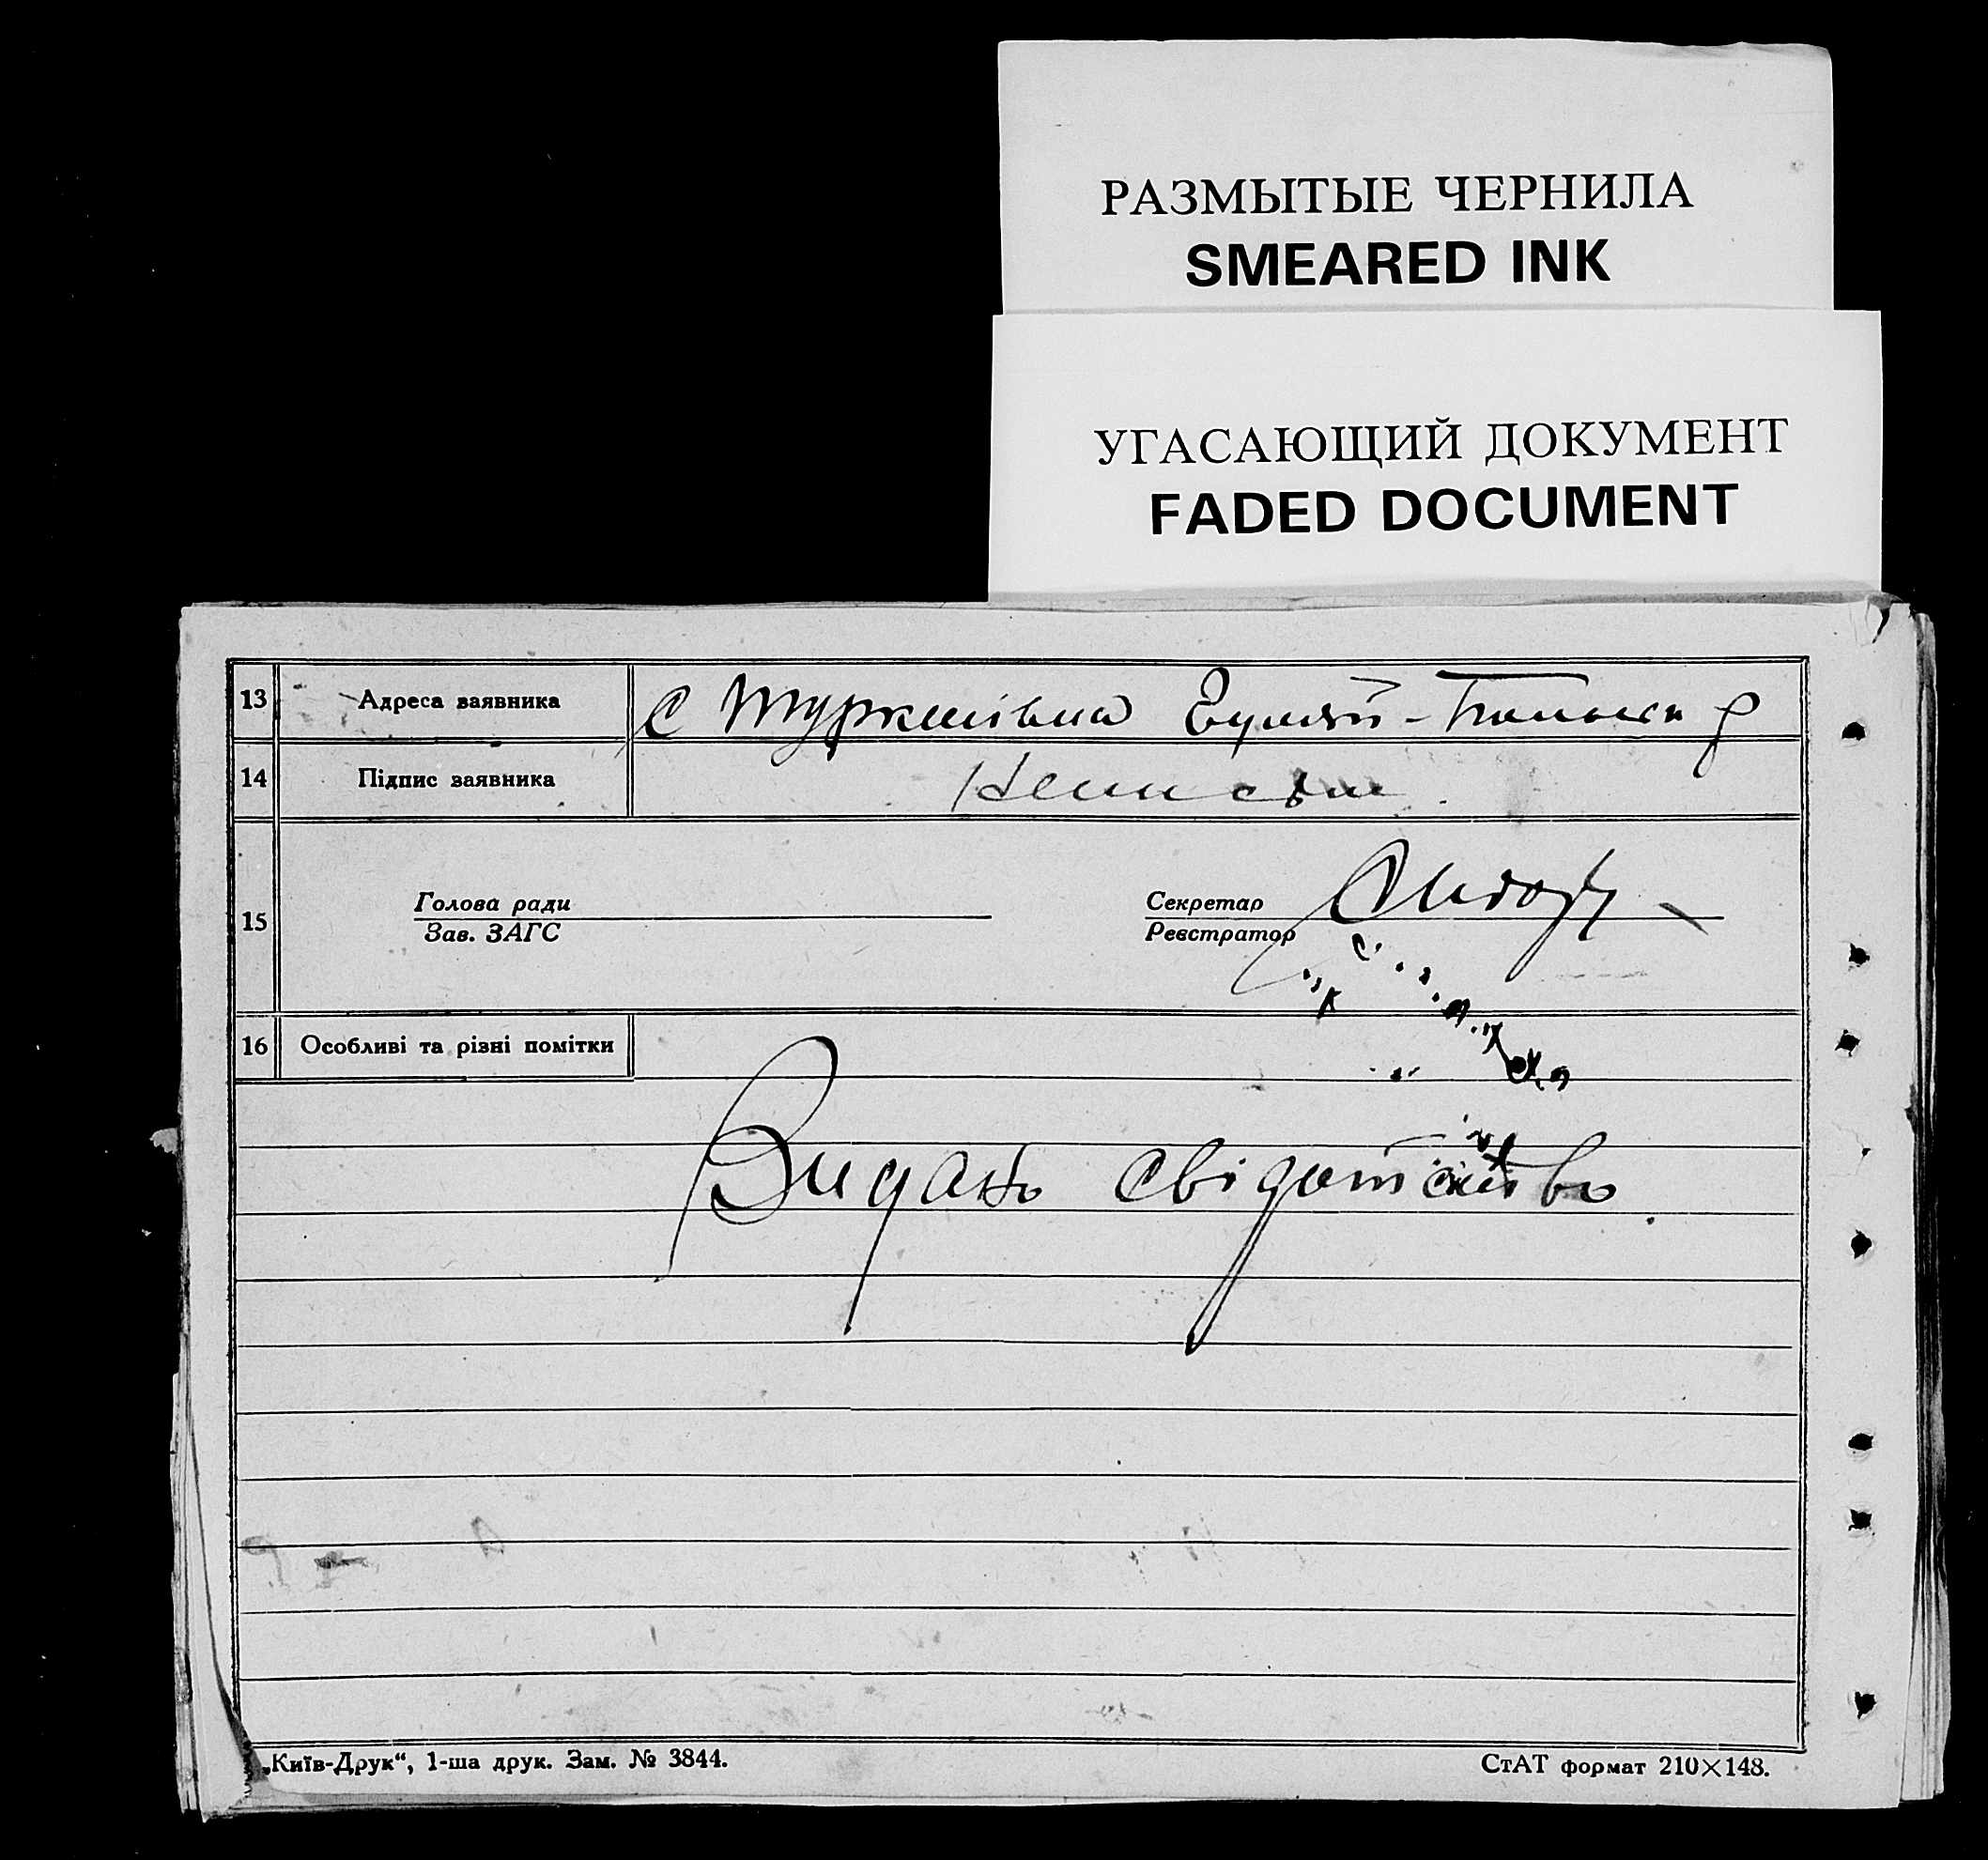 РАЗМЫТЫЕ ЧЕРНИЛА
SMEARED INK
УГАСАЮЩИЙ ДОКУМЕНТ
FADED DOCUMENT
13 Адреса заявника с Туркенівка Гуляй-Польськ р
14 Підпис заявника
15 Голова ради
Зав. ЗАГС
Секретар
Реєстратор
16 Особливі та різні помітки
Видано свідотство
„Київ-Друк“, 1-ша друк. Зам. № 3844.
СтАТ формат 210×148.